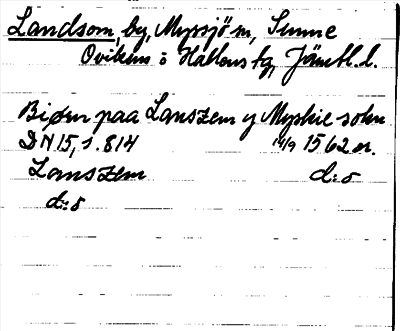 Landsom, by, Myssjö sn, Sunne
Ovikens o Hallens tg, Jämtl. l.
Biörn paa Lanszem y Myskie sokn
DN 15, s. 814 14/9 1562 or.
Lanszem d:o
d:o